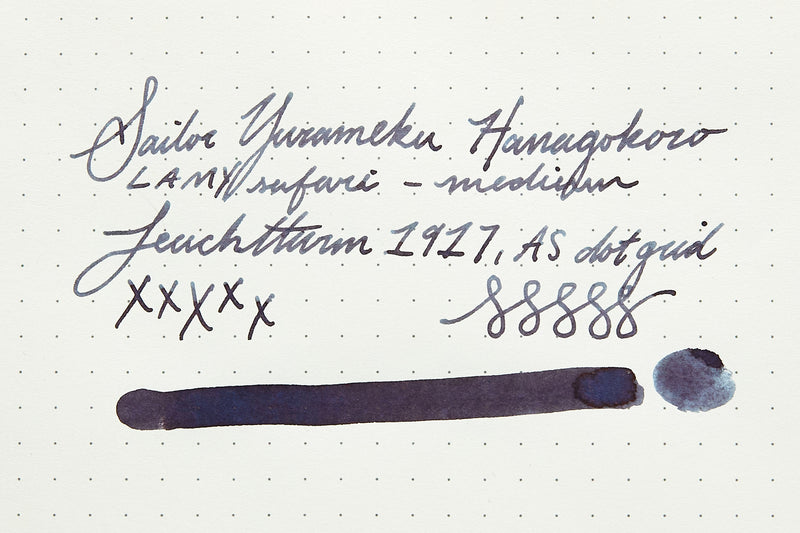 Sailor Yurameku Hanagokoro
LAMY safari - medium
Leuchtturm 1917, A5 dot grid
XXXXX